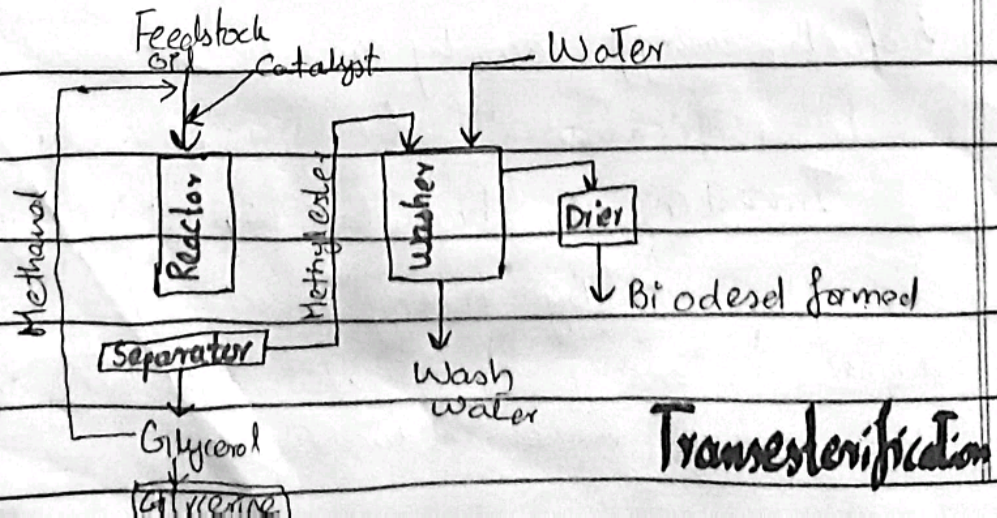 Feedstock
Oil
Catalyst
Water
Methanol
Reactor
Methylester
Washer
Drier
Biodesel formed
Separater
Wash
Water
Glycerol
Transesterification